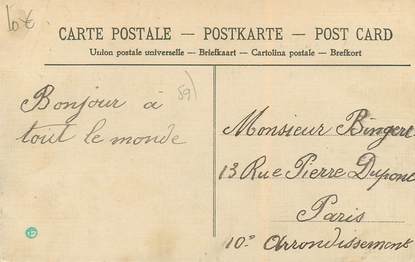 10€
CARTE POSTALE — POSTKARTE — POST CARD
Union postale universelle — Briefkaart — Cartolina postale — Brefkort
59)
Bonjour à
tout le monde
Monsieur Binger
13 Rue Pierre Dupont
Paris
10e Arrondissement